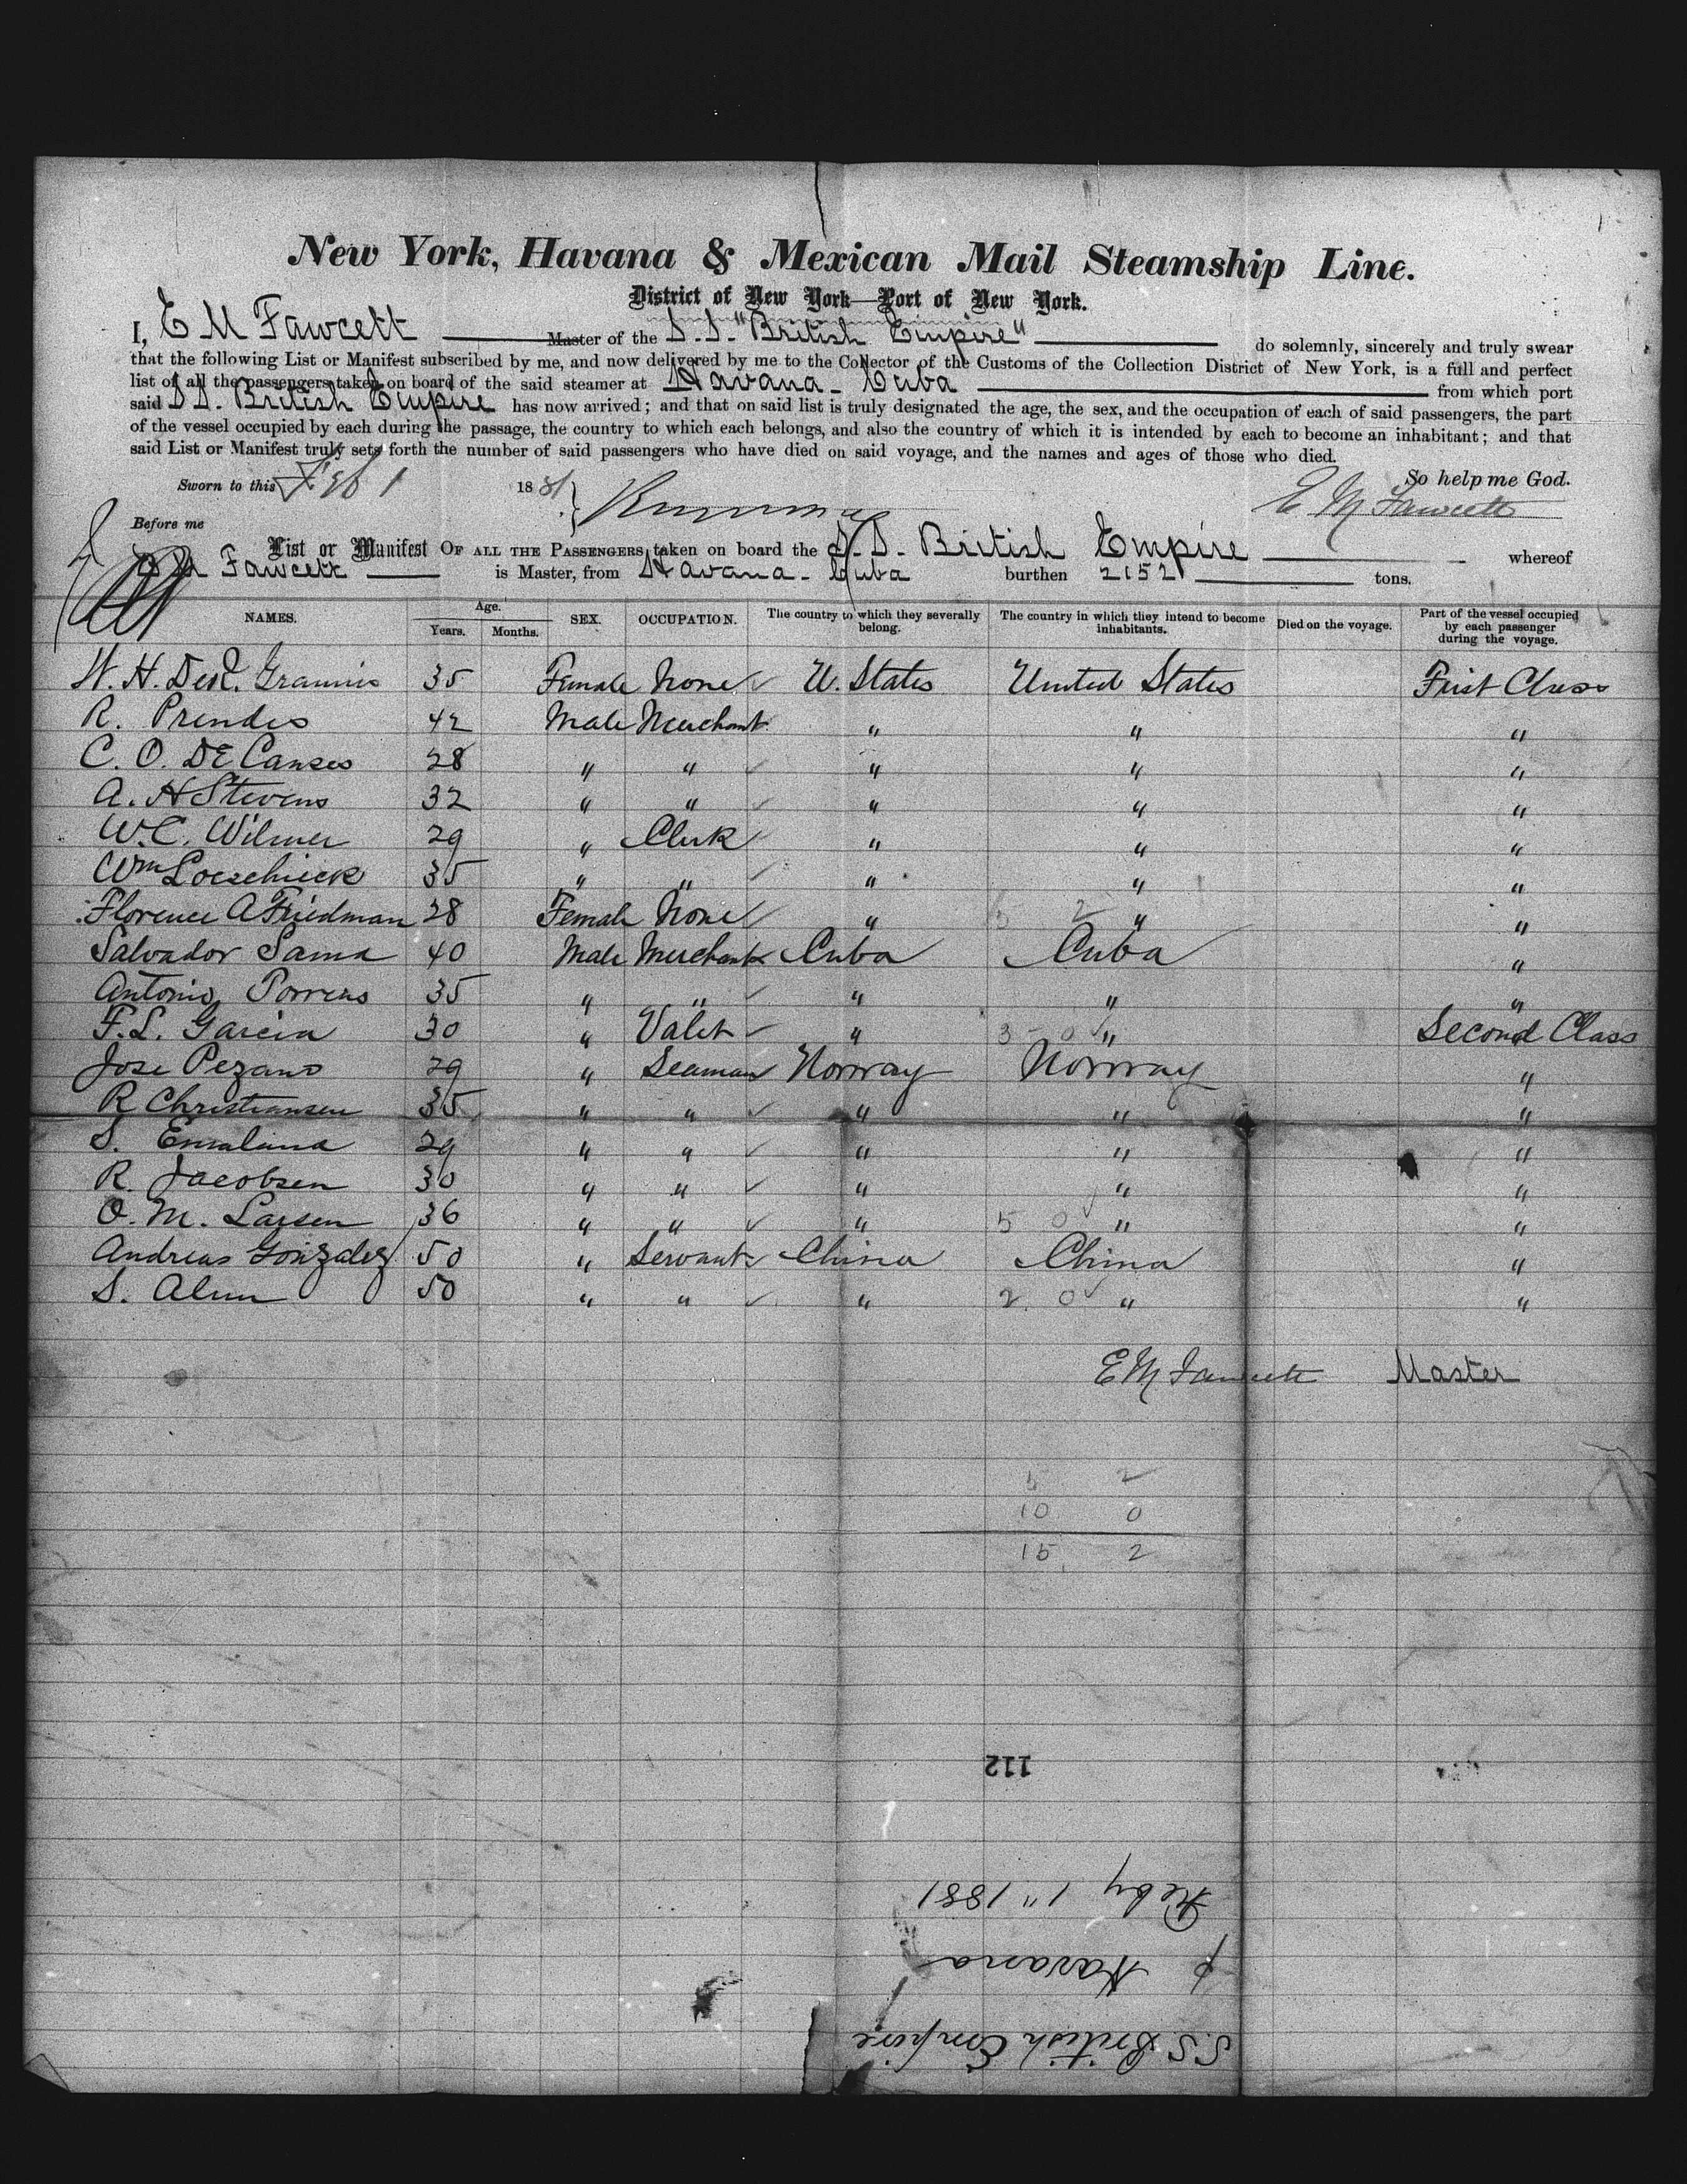 New York, Havana & Mexican Mail Steamship Line.
District of New York—Port of New York.
I, E M Fawcett Master of the S.S. "British Empire" do solemnly, sincerely and truly swear
that the following List or Manifest subscribed by me, and now delivered by me to the Collector of the Customs of the Collection District of New York, is a full and perfect
list of all the passengers taken on board of the said steamer at Havana - Cuba from which port
said S S. British Empire has now arrived; and that on said list is truly designated the age, the sex, and the occupation of each of said passengers, the part
of the vessel occupied by each during the passage, the country to which each belongs, and also the country of which it is intended by each to become an inhabitant; and that
said List or Manifest truly sets forth the number of said passengers who have died on said voyage, and the names and ages of those who died.
So help me God.
Sworn to this Feb 1 1881 E M Fawcett
Before me
List or Manifest OF ALL THE PASSENGERS taken on board the S.S. British Empire whereof
E M Fawcett is Master, from Havana - Cuba burthen 2152 tons.
NAMES. Age. Years. Months. SEX. OCCUPATION. The country to which they severally belong. The country in which they intend to become inhabitants. Died on the voyage. Part of the vessel occupied by each passenger during the voyage.
W. H. 35 Female None U. States United States First Class
R. Prendes 42 Male Merchant " " "
C. O. DE Canses 28 " " " " "
A. H Stevens 32 " " " " "
W. C. Wilmer 29 " Clerk " " "
Wm Loeschieck 35 " " " " "
Florence A Friedman 28 Female None " 5 2 " "
Salvador Sama 40 Male Merchant Cuba Cuba "
Antonio Porrens 35 " " " " "
F. L. Garcia 30 " Valet " 3 - 0 " Second Class
Jose Pezans 29 " Seaman Norway Norway "
R Christiansen 35 " " " " "
S. 29 " " " " "
R. Jacobsen 30 " " " " "
O. M. Larsen 36 " " " 5 0 " "
Andreas Gonzalez 50 " Servant China China "
S. Alum 50 " " " 2 0 " "
E M Fawcett Master
5 2
10 0
15 2
112
Feby 1" 1881
Havana
S.S. British Empire